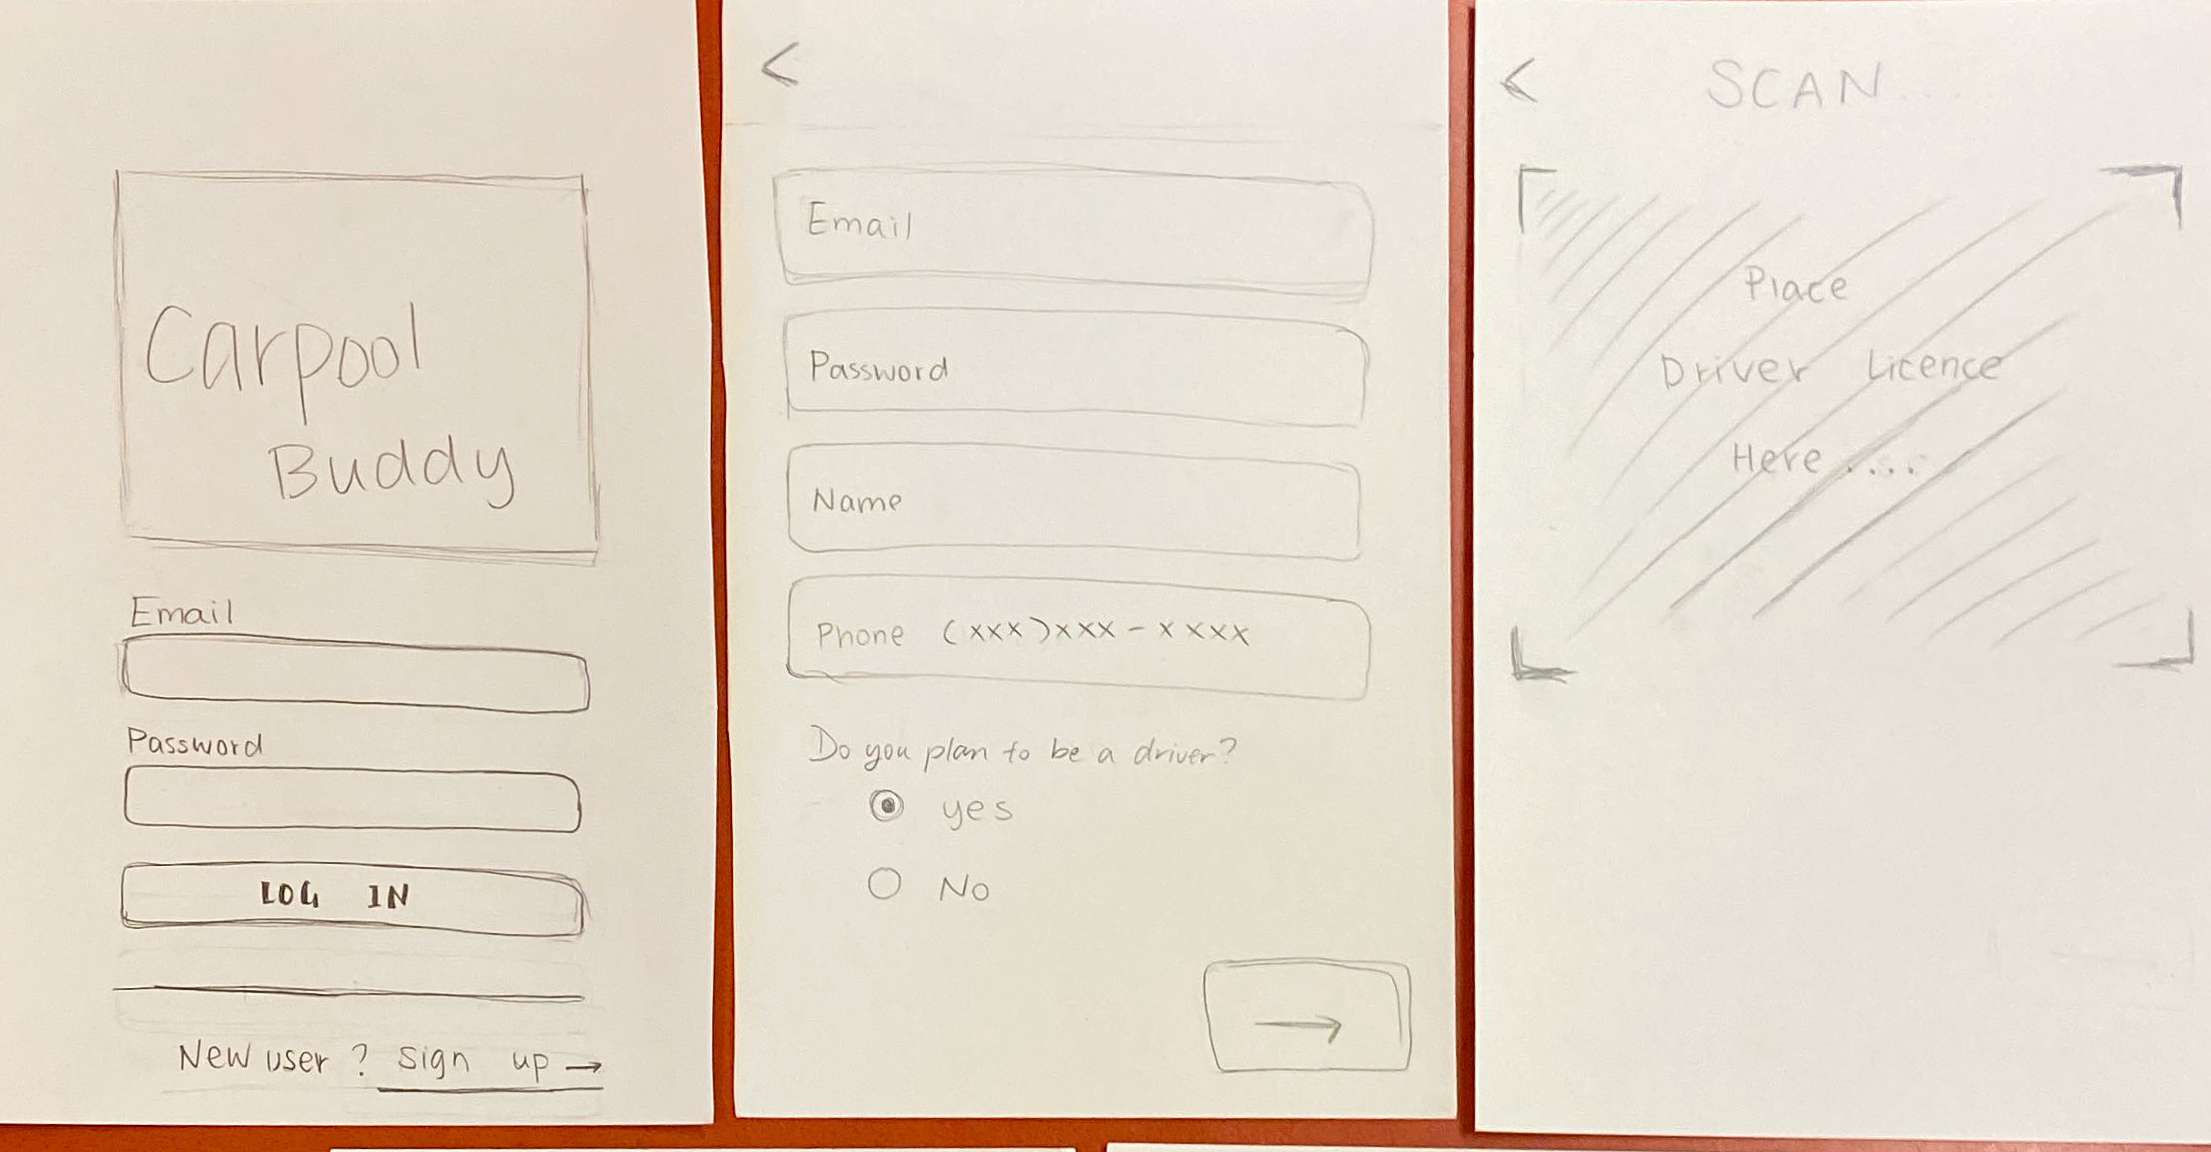 Carpool
Buddy
Email
Password
LOG IN
New user ? sign up →
<
Email
Password
Name
Phone (xxx)xxx-xxxx
Do you plan to be a driver?
yes
No
→
< SCAN.....
Place
Driver Licence
Here ....